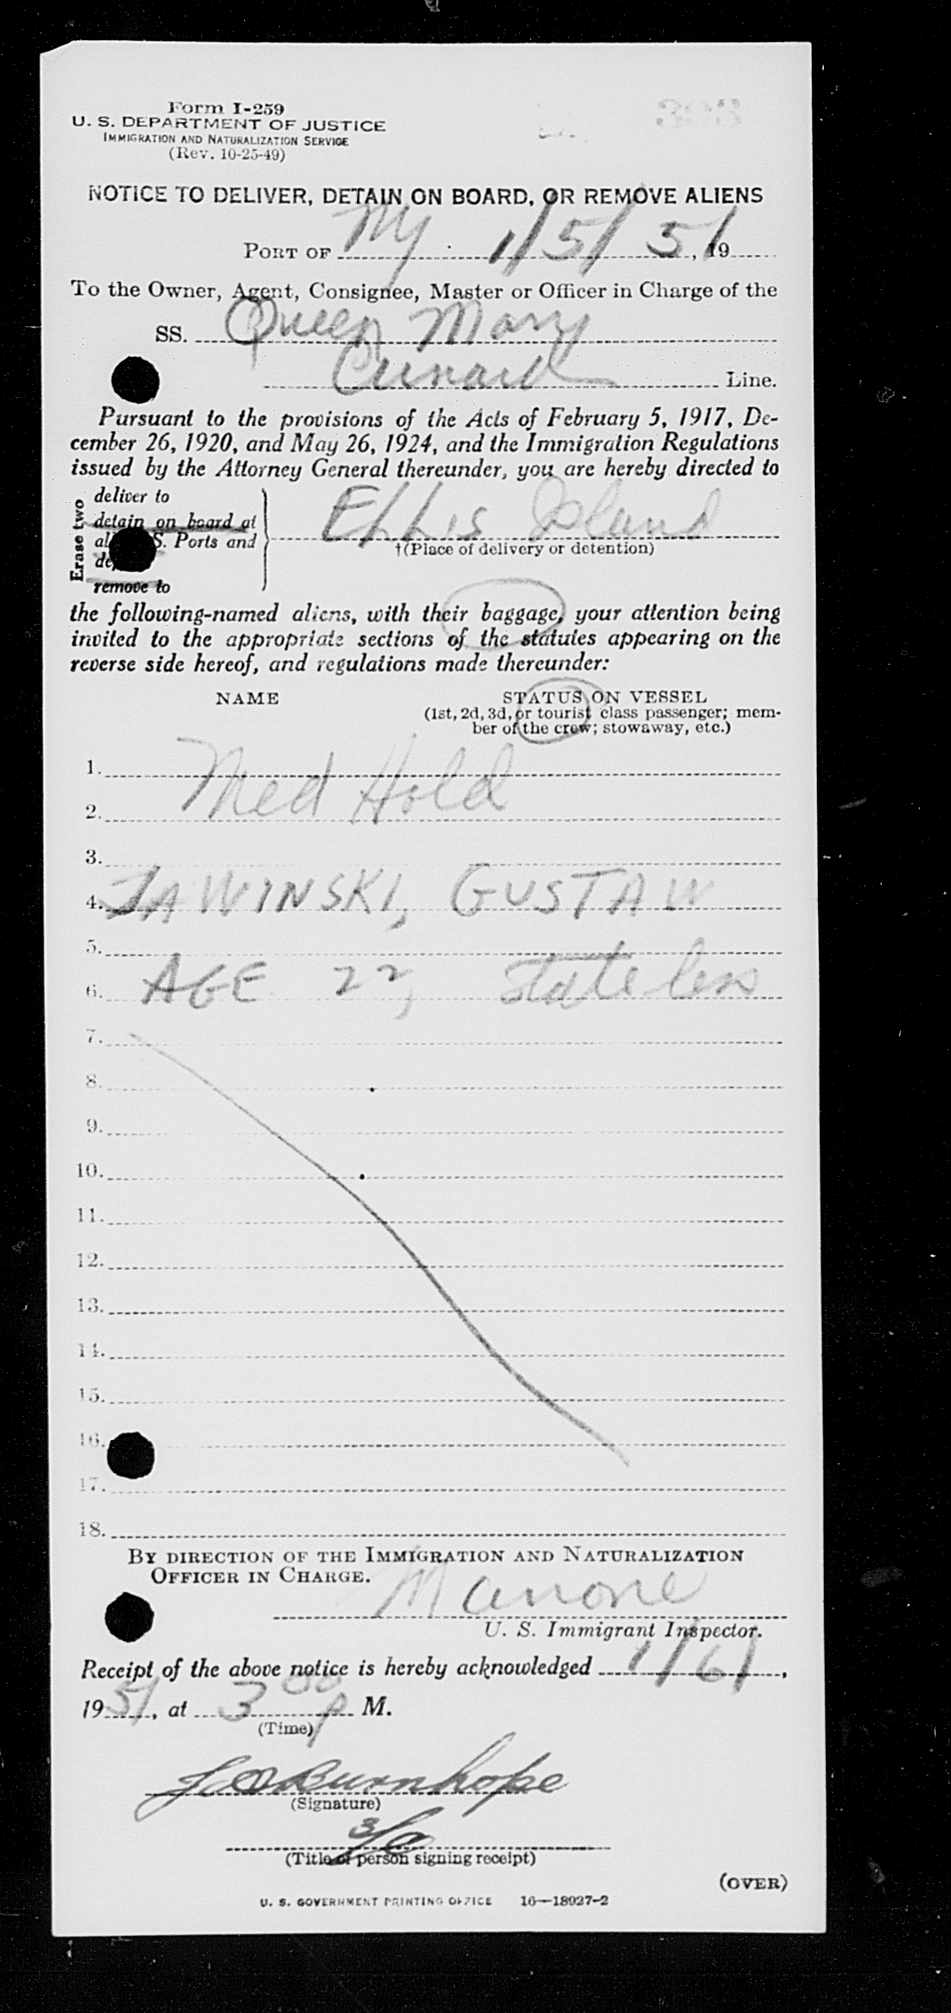 Form I-259
U. S. DEPARTMENT OF JUSTICE
IMMIGRATION AND NATURALIZATION SERVICE
(Rev. 10-25-49)
NOTICE TO DELIVER, DETAIN ON BOARD, OR REMOVE ALIENS
PORT OF NY 1/5/51, 19
To the Owner, Agent, Consignee, Master or Officer in Charge of the
SS. Queen Mary
Cunard Line.
Pursuant to the provisions of the Acts of February 5, 1917, De-
cember 26, 1920, and May 26, 1924, and the Immigration Regulations
issued by the Attorney General thereunder, you are hereby directed to
Erase two
deliver to
detain on board at
S. Ports and
remove to
Ellis Island
†(Place of delivery or detention)
the following-named aliens, with their baggage, your attention being
invited to the appropriate sections of the statutes appearing on the
reverse side hereof, and regulations made thereunder:
NAME STATUS ON VESSEL
(1st, 2d, 3d, or tourist class passenger; mem-
ber of the crew; stowaway, etc.)
1.
Med Hold
2.
3.
4. JAWINSKI, GUSTAW
5.
6. AGE 22, Stateless
7.
8.
9.
10.
11.
12.
13.
14.
15.
16.
17.
18.
BY DIRECTION OF THE IMMIGRATION AND NATURALIZATION
OFFICER IN CHARGE.
Manone
U. S. Immigrant Inspector.
Receipt of the above notice is hereby acknowledged 1/6/,
1951, at 3 00 P M.
(Time)
Burnhope
(Signature)
3/O
(Title of person signing receipt)
(OVER)
U. S. GOVERNMENT PRINTING OFFICE 16—18927-2